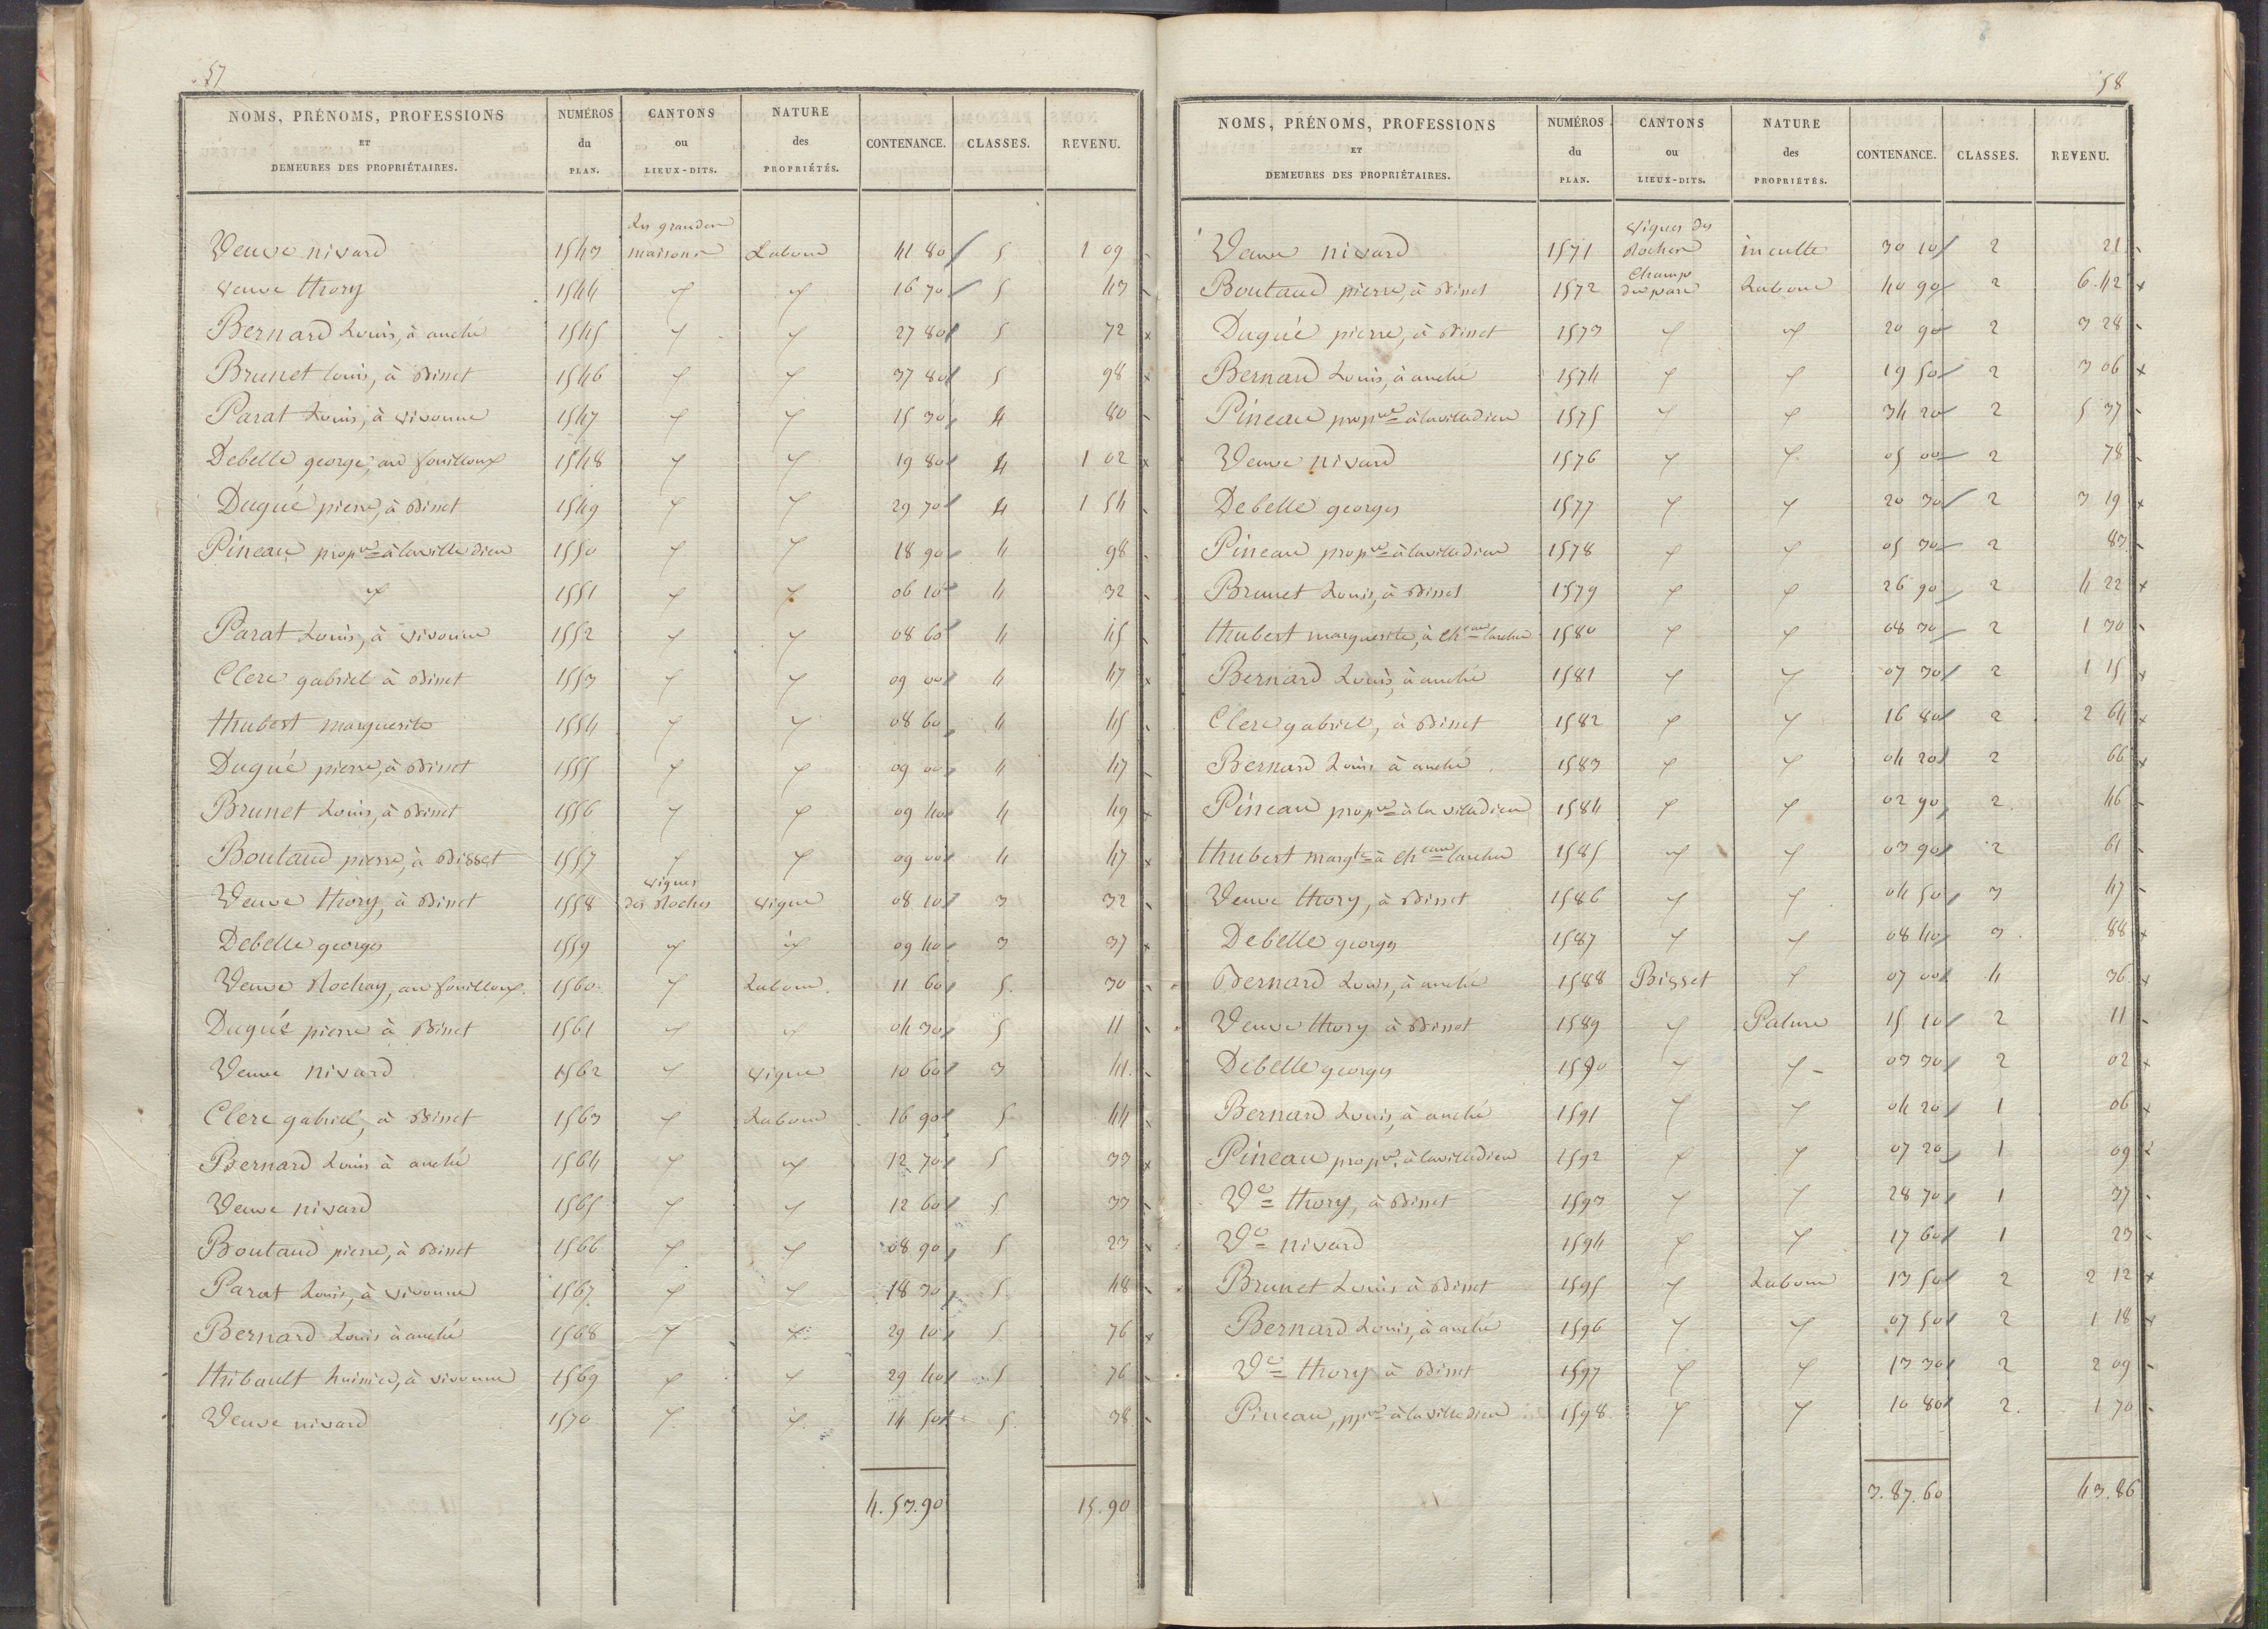 57
NOMS, PRÉNOMS, PROFESSIONS ET DEMEURES DES PROPRIÉTAIRES. NUMÉROS du PLAN. CANTONS ou LIEUX-DITS. NATURE des PROPRIÉTÉS. CONTENANCE. CLASSES. REVENU.
Les grandes
Veuve nivard 1543 maisons Labour 41 80 5 1 09
veuve thory 1544 〃 〃 16 70 5 43
Bernard Louis, à anché 1545 〃 〃 27 80 5 72
Brunet louis, à Bisset 1546 〃 〃 37 80 5 98
Parat Louis, à vivonne 1547 〃 〃 15 30 4 80
Debelle george, au fouilloux 1548 〃 〃 19 80 4 1 02
Dugué pierre, à Bisset 1549 〃 〃 29 70 4 1 54
Pineau propre à lavilledieu 1550 〃 〃 18 90 4 98
〃 1551 〃 〃 06 10 4 32
Parat Louis, à vivonne 1552 〃 〃 08 60 4 45
Clerc gabriel à Bisset 1553 〃 〃 09 00 4 47
thubert marguerite 1554 〃 〃 08 60 4 45
Dugué pierre, à Bisset 1555 〃 〃 09 00 4 47
Brunet Louis, à Bisset 1556 〃 〃 09 40 4 49
Boutaud pierre, à Bisset 1557 〃 〃 09 00 4 47
vignes
Veuve thory, à Bisset 1558 des Roches vigne 08 10 3 32
Debelle georges 1559 〃 〃 09 40 3 37
Veuve Rochay, au fouilloux. 1560 〃 Labour. 11 60 5. 30
Dugué pierre à Bisset 1561 〃 〃 04 30 5 11
Veuve nivard 1562 〃 vigne 10 60 3 41
Clerc gabriel, à Bisset 1563 〃 Labour 16 90 5 44
Bernard Louis à anché 1564 〃 〃 12 70 5 33
Veuve nivard 1565 〃 〃 12 60 5 33
Boutaud pierre, à Bisset 1566 〃 〃 08 90 5 23
Parat Louis, à vivonne 1567 〃 〃 18 30 5 48
Bernard Louis à anché 1568 〃 〃 29 10 5 76
thibault huissier, à vivonne 1569 〃 〃 29 40 5 76
Veuve nivard 1570 〃 〃 14 50 5. 38
4.53.90 15.90
58
NOMS, PRÉNOMS, PROFESSIONS ET DEMEURES DES PROPRIÉTAIRES. NUMÉROS du PLAN. CANTONS ou LIEUX-DITS. NATURE des PROPRIÉTÉS. CONTENANCE. CLASSES. REVENU.
vignes des
Veuve nivard 1571 Rochers inculte 30 10 2 21
Champ
Boutaud pierre, à Bisset 1572 du parc Labour 40 90 2 6.42
Dugué pierre, à Bisset 1573 〃 〃 20 90 2 3 28
Bernard Louis, à anché 1574 〃 〃 19 50 2 3 06
Pineau propre à lavilledieu 1575 〃 〃 34 20 2 5 37
Veuve nivard 1576 〃 〃 05 00 2 78
Debelle georges 1577 〃 〃 20 30 2 3 19
Pineau propre à lavilledieu 1578 〃 〃 05 30 2 83
Brunet Louis, à Bisset 1579 〃 〃 26 90 2 4 22
thubert marguerite, à cheau larcher 1580 〃 〃 08 30 2 1 30
Bernard Louis, à anché 1581 〃 〃 07 30 2 1 15
Clerc gabriel, à Bisset 1582 〃 〃 16 80 2 2 64
Bernard Louis à anché 1583 〃 〃 04 20 2 66
Pineau propre à la villedieu 1584 〃 〃 02 90 2. 46
thubert margte à cheau larcher 1585 〃 〃 03 90 2 61
Veuve thory, à Bisset 1586 〃 〃 04 50 3 47
Debelle georges 1587 〃 〃 08 40 3 88
Bernard Louis, à anché 1588 Bisset 〃 07 00 4 36
Veuve thory à Bisset 1589 〃 Pature 15 10 2 11
Debelle georges 1590 〃 〃 03 30 2 02
Bernard Louis, à anché 1591 〃 〃 04 20 1 06
Pineau propre, à lavilledieu 1592 〃 〃 07 20 1 09
Ve thory, à Bisset 1593 〃 〃 28 70 1 37
Ve nivard 1594 〃 〃 17 60 1 23
Brunet Louis à Bisset 1595 〃 Labour 13 50 2 2 12
Bernard Louis, à anché 1596 〃 〃 07 50 2 1 18
Ve thory à Bisset 1597 〃 〃 13 30 2 2 09
Pineau, ppre à lavilledieu 1598 〃 〃 10 80 2. 1 70
3.87.60 43.86